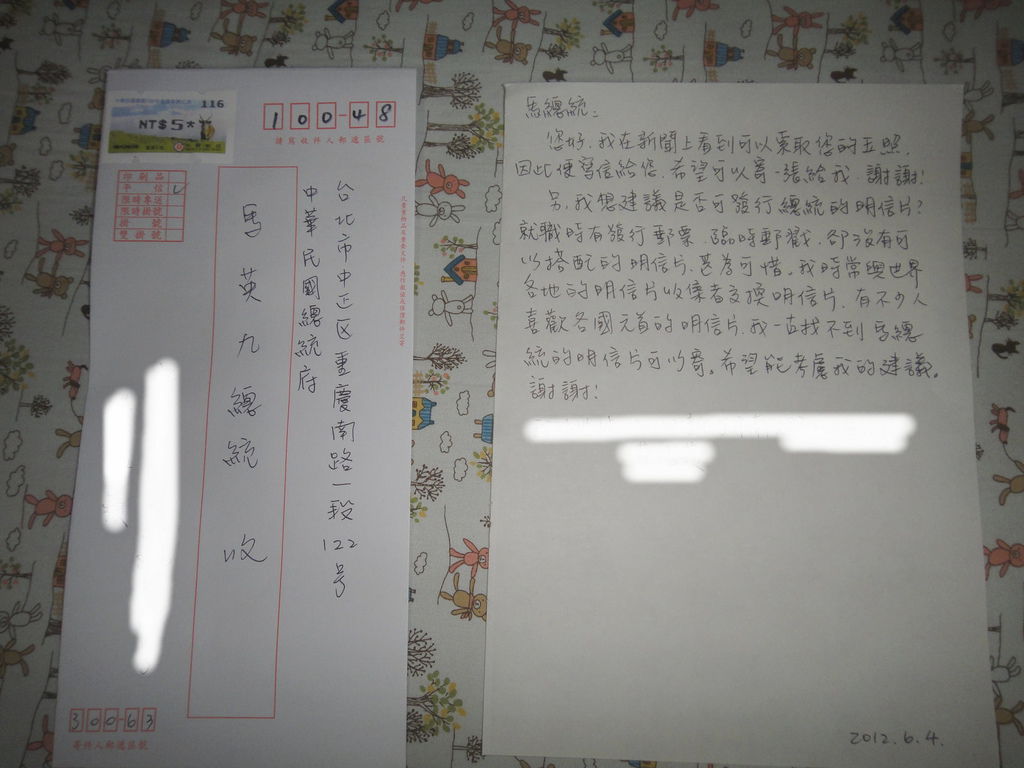 116
NT$5*
100-48
請寫收件人郵遞區號
印刷品
平信
限時專送
限時掛號
掛號
雙掛號
台北市中正区重慶南路一段122号
中華民國總統府
馬英九總統 收
300-63
寄件人郵遞區號
馬總統:
您好,我在新聞上看到可以索取您的玉照,
因此便寫信給您,希望可以寄一張給我,謝謝!
另,我想建議是否可發行總統的明信片?
就職時有發行郵票、臨時郵戳,卻沒有可
以搭配的明信片,甚為可惜。我時常與世界
各地的明信片收集者交換明信片,有不少人
喜歡各國元首的明信片,我一直找不到馬總
統的明信片可以寄。希望能考慮我的建議。
謝謝!
2012.6.4.